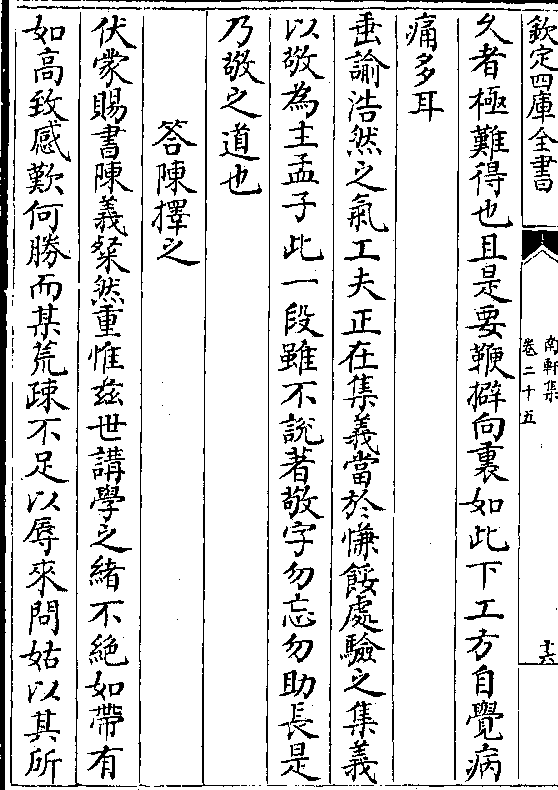 欽定四庫全書
南軒集
卷二十五
十六
久者極難得也且是要鞭擗向裏如此下工方自覺病
痛多耳
垂諭浩然之氣工夫正在集義當於慊餒處驗之集義
以敬為主孟子此一段雖不說著敬字勿忘勿助長是
乃敬之道也
答陳擇之
伏蒙賜書陳義粲然重惟兹世講學之緒不絶如帶有
如高致感歎何勝而某荒疎不足以辱來問姑以其所